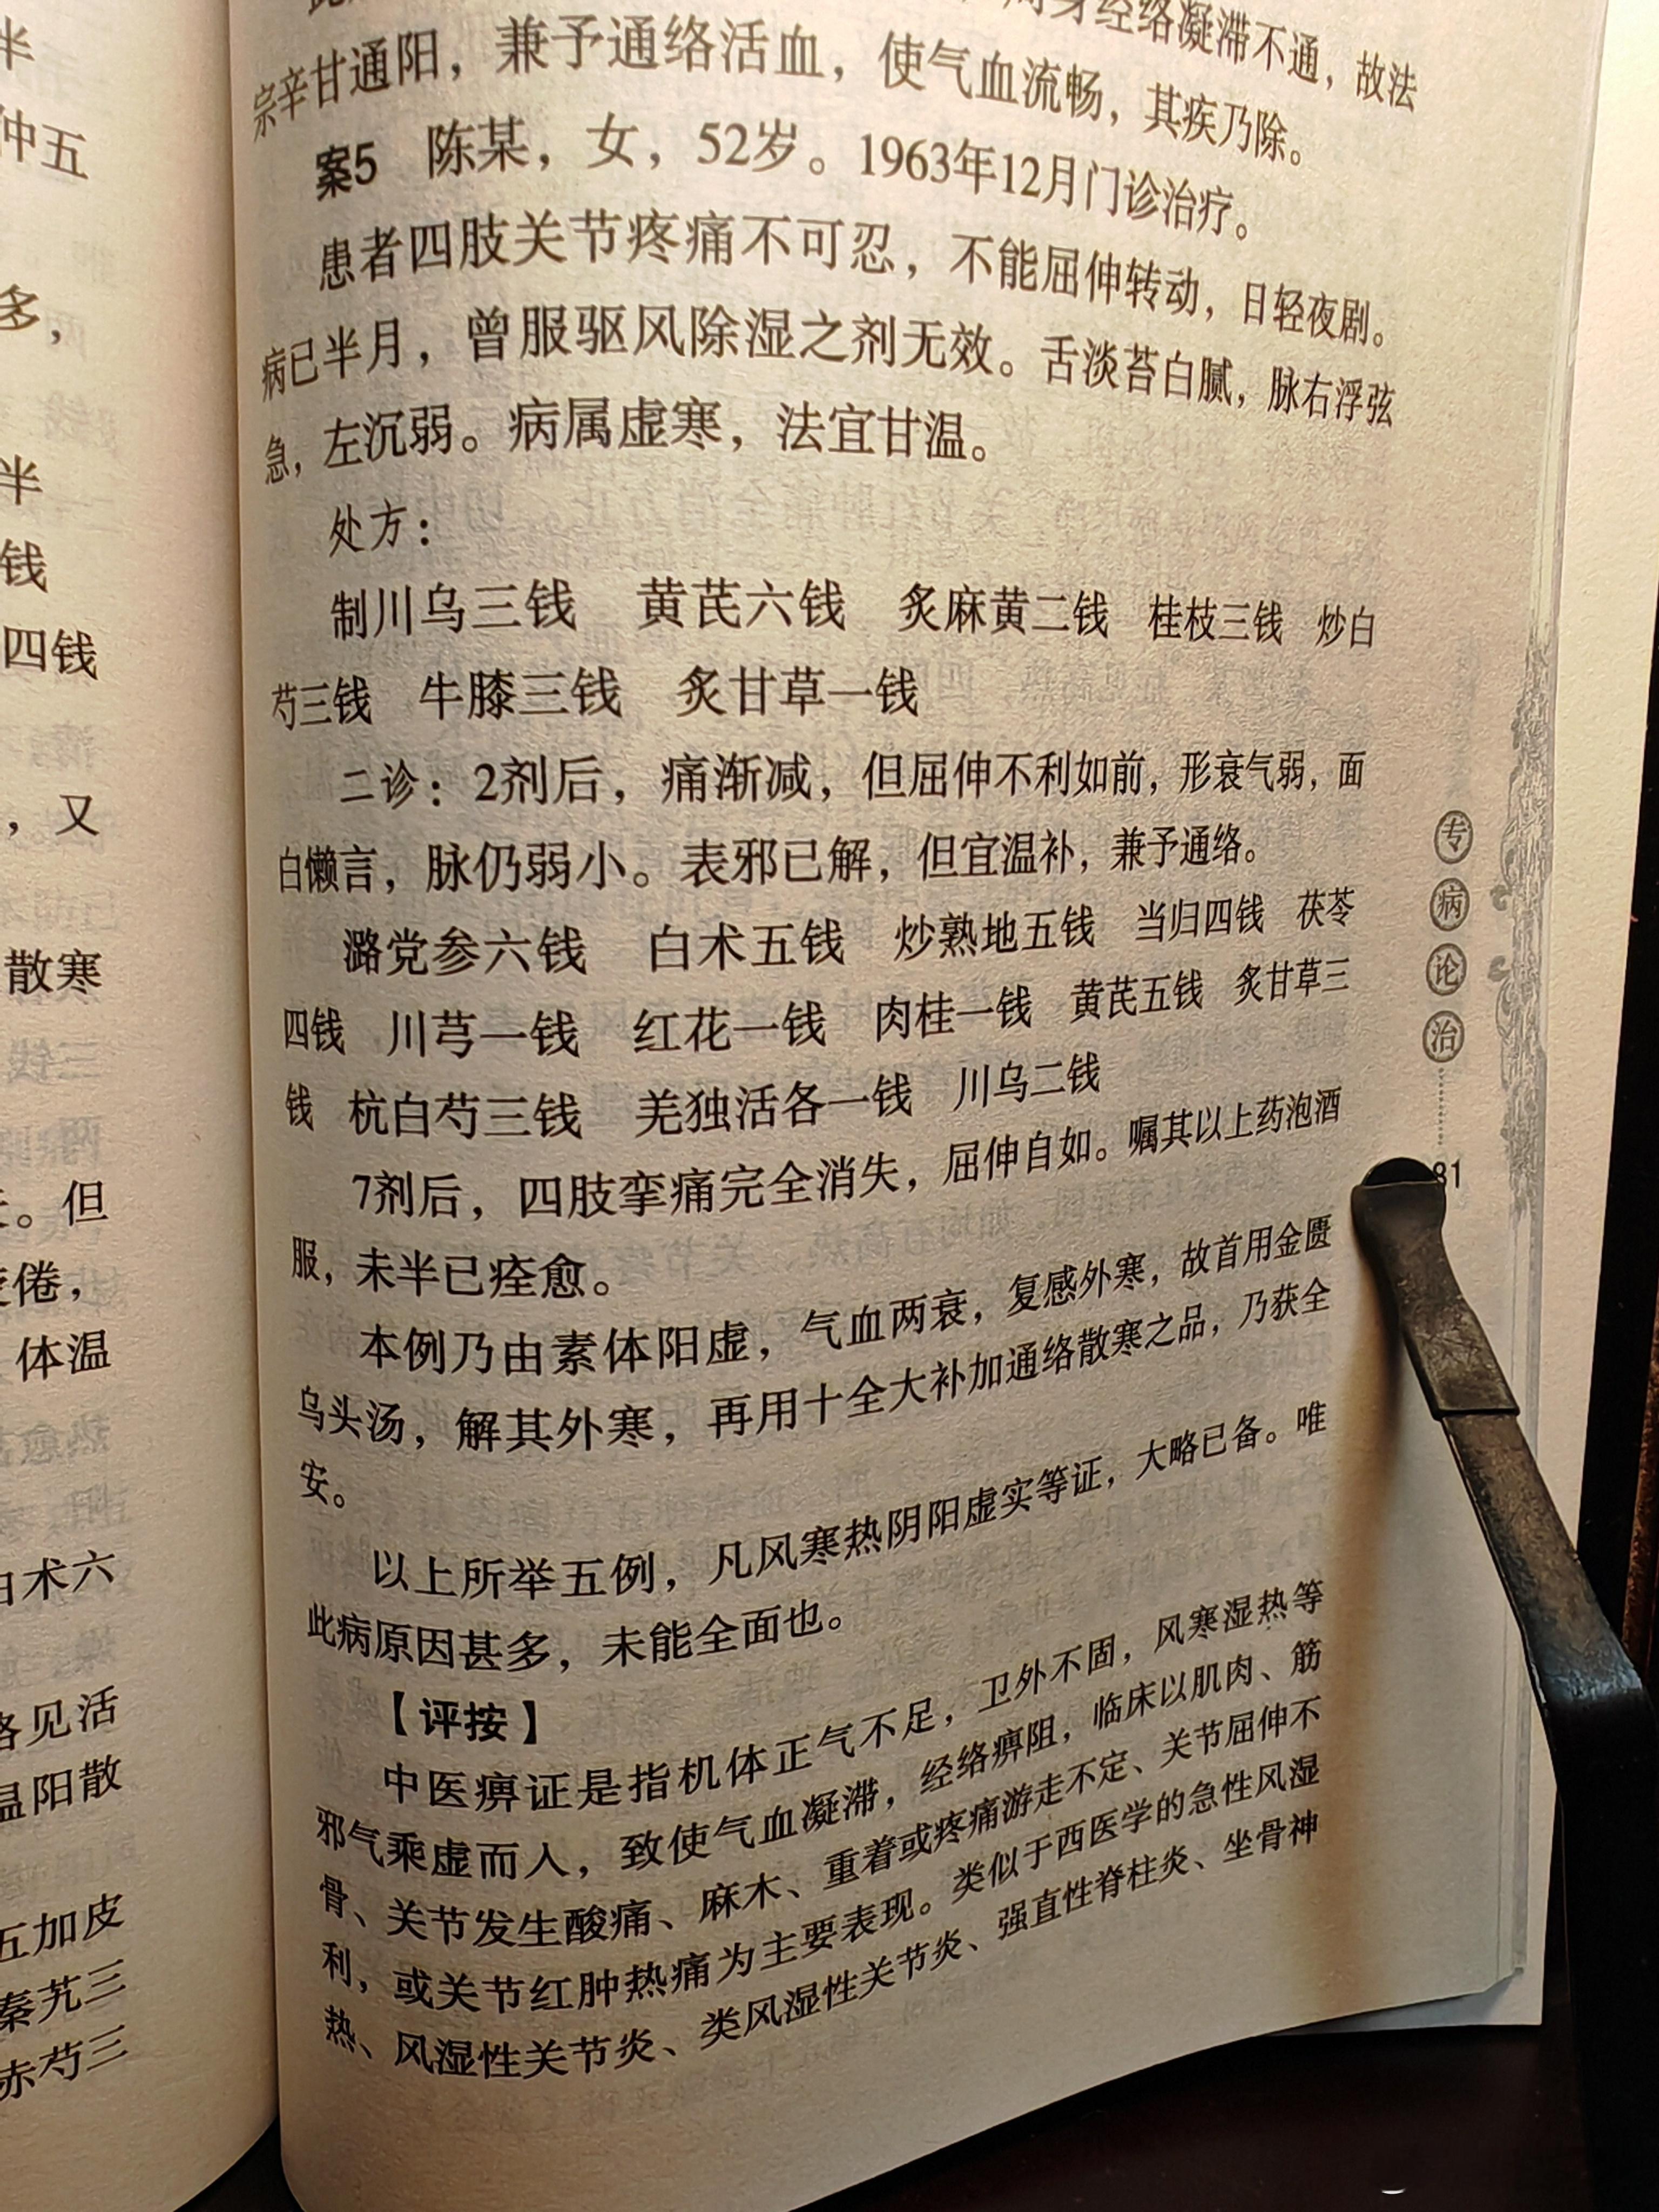 半
仲五
多，
半
钱
四钱
，又
散寒
。但
倦，
体温
白术六
络见活
温阳散
五加皮
秦艽三
赤芍三
周身经络凝滞不通，故法
宗辛甘通阳，兼予通络活血，使气血流畅，其疾乃除。
案5 陈某，女，52岁。1963年12月门诊治疗。
患者四肢关节疼痛不可忍，不能屈伸转动，日轻夜剧。
病已半月，曾服驱风除湿之剂无效。舌淡苔白腻，脉右浮弦
急，左沉弱。病属虚寒，法宜甘温。
处方：
制川乌三钱 黄芪六钱 炙麻黄二钱 桂枝三钱 炒白
芍三钱 牛膝三钱 炙甘草一钱
二诊：2剂后，痛渐减，但屈伸不利如前，形衰气弱，面
白懒言，脉仍弱小。表邪已解，但宜温补，兼予通络。
潞党参六钱 白术五钱 炒熟地五钱 当归四钱 茯苓
四钱 川芎一钱 红花一钱 肉桂一钱 黄芪五钱 炙甘草三
钱 杭白芍三钱 羌独活各一钱 川乌二钱
7剂后，四肢挛痛完全消失，屈伸自如。嘱其以上药泡酒
服，未半已痊愈。
本例乃由素体阳虚，气血两衰，复感外寒，故首用金匮
乌头汤，解其外寒，再用十全大补加通络散寒之品，乃获全
安。
以上所举五例，凡风寒热阴阳虚实等证，大略已备。唯
此病原因甚多，未能全面也。
【评按】
中医痹证是指机体正气不足，卫外不固，风寒湿热等
邪气乘虚而人，致使气血凝滞，经络痹阻，临床以肌肉、筋
骨、关节发生酸痛、麻木、重着或疼痛游走不定、关节屈伸不
利，或关节红肿热痛为主要表现。类似于西医学的急性风湿
热、风湿性关节炎、类风湿性关节炎、强直性脊柱炎、坐骨神
专病论治
81